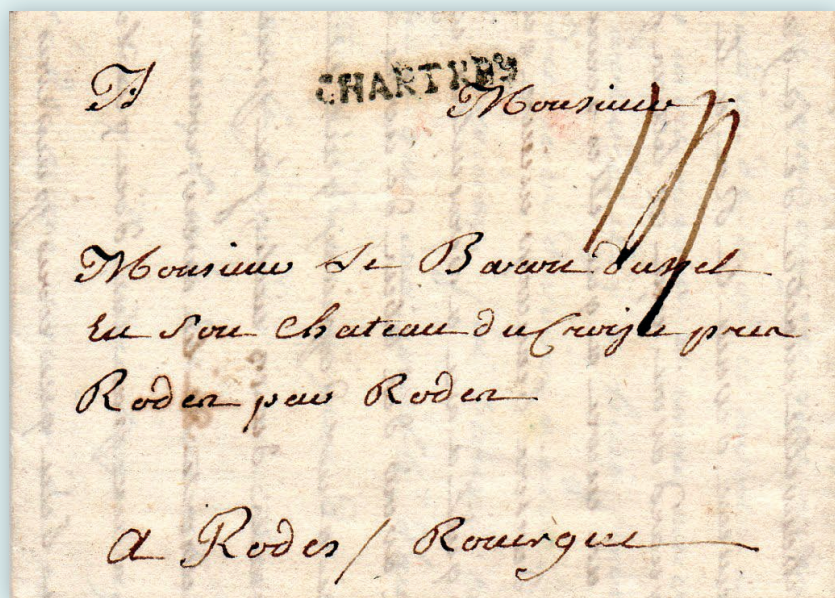 A
CHARTRES
Monsieur
Monsieur Le Baron
En Son Chateau du pres
Rodez par Rodez
a Rodes / Rouergue